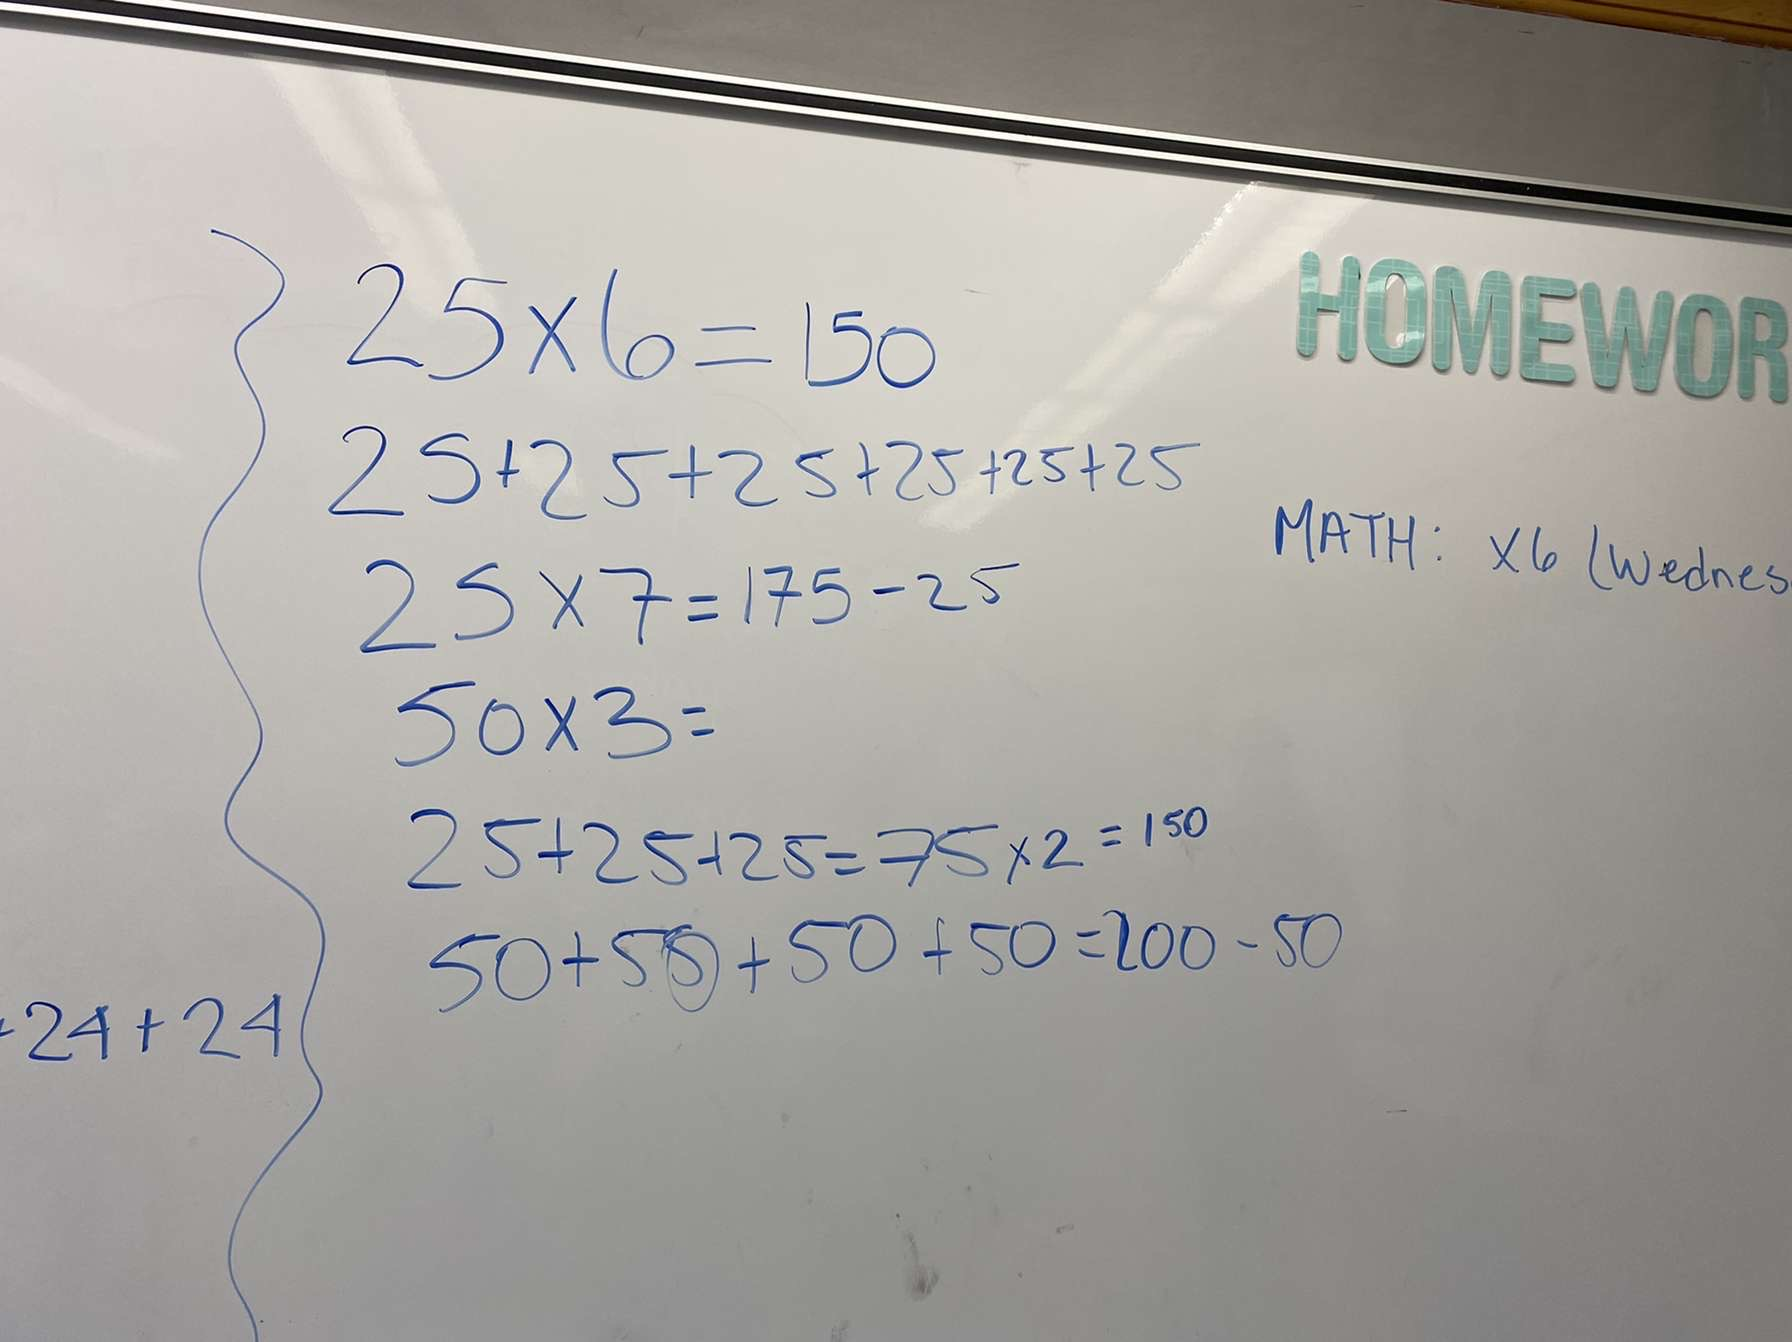 25×6=150
25+25+25+25+25+25
25×7=175-25
50×3=
25+25+25=75×2=150
50+50+50+50=200-50
+24+24
HOMEWOR
MATH: ×6 (Wednes